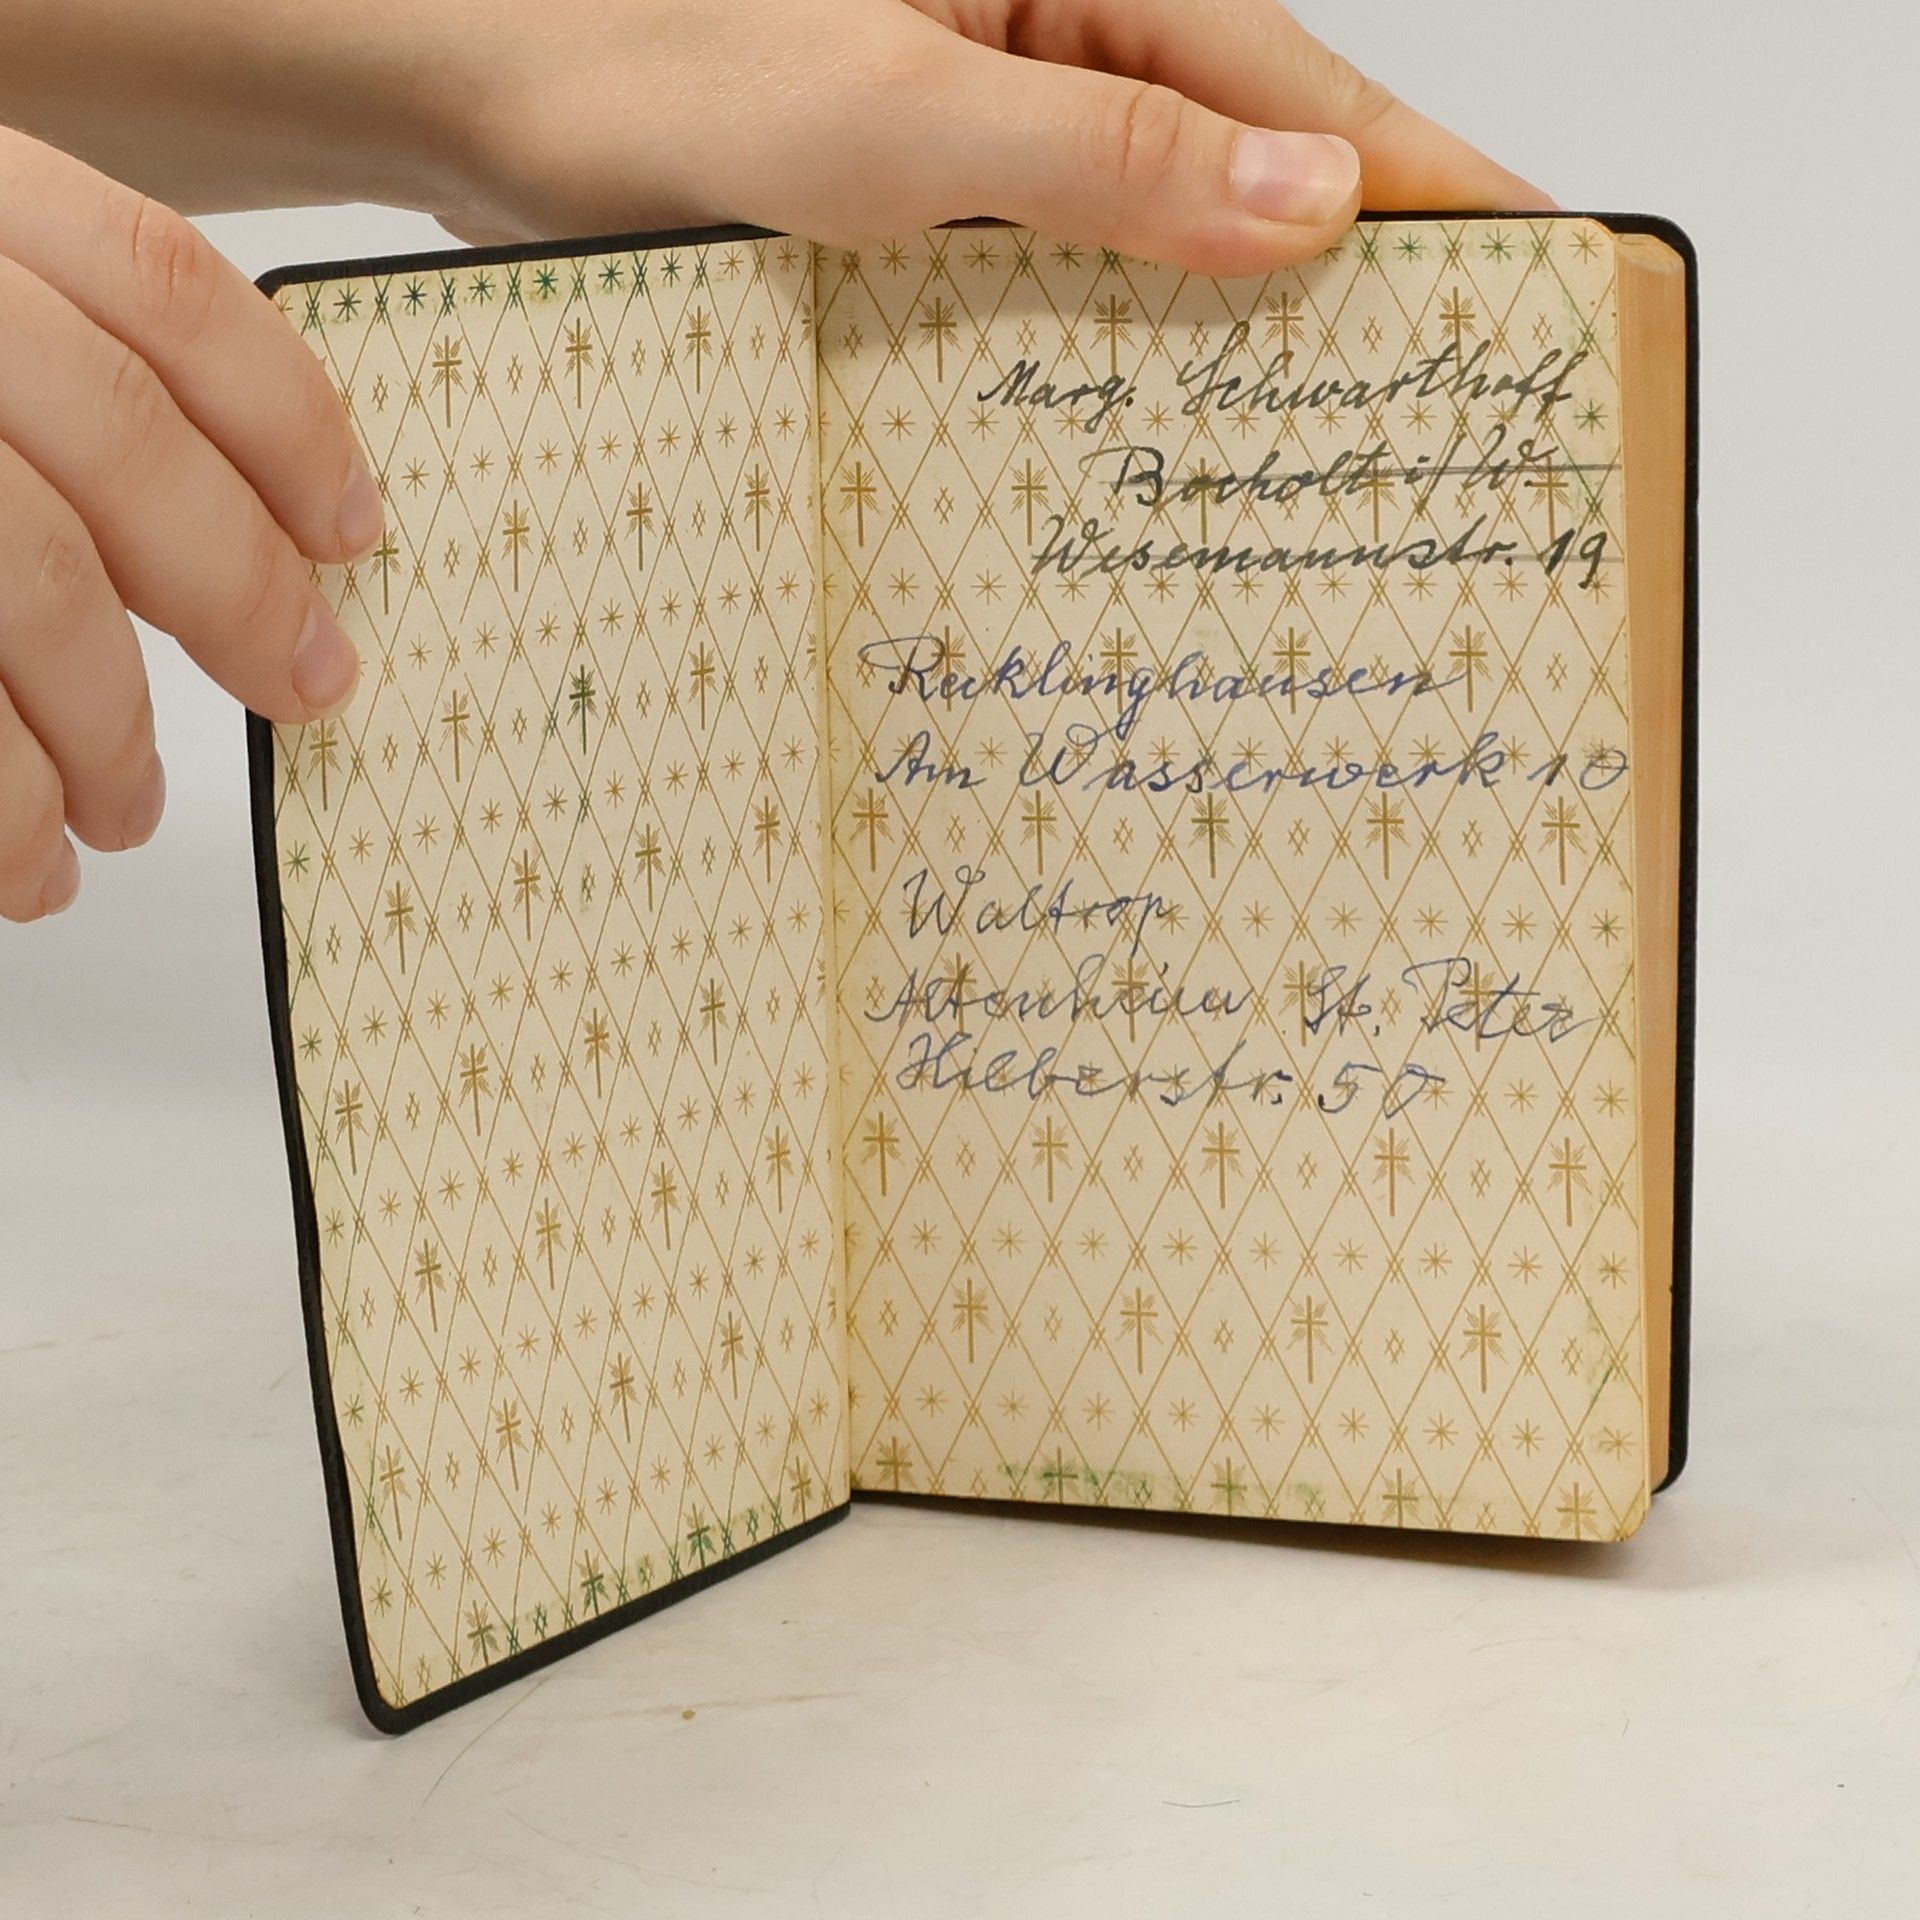 Marg. Schwarthoff
Bocholt i/W.
Wesemannstr. 19
Recklinghausen
Am Wasserwerk 10
Waltrop
Altenheim St. Peter
Hilberstr. 50